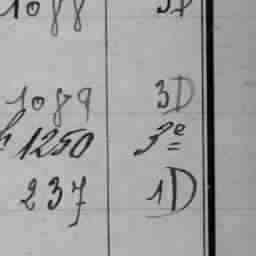 1088 3D
1089 3D
1250 3e
237 1D